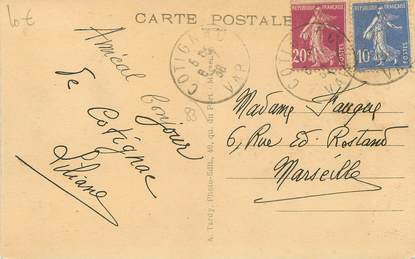 10€
CARTE POSTALE
Amical bonjour
de Cotignac
Liliane
COTIGNAC
VAR
38
A. Tardy, Photo-Édit., 40, qu. du Port,
RÉPUBLIQUE FRANÇAISE
20c
POSTES
RÉPUBLIQUE FRANÇAISE
10c
POSTES
COTIGNAC
VAR
Madame
6, Rue Ed. Rostand
Marseille